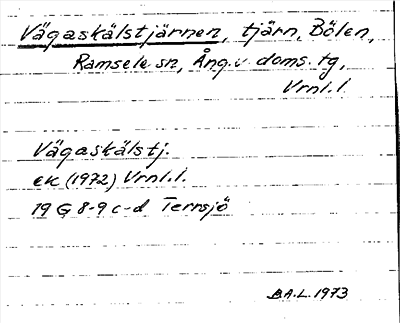 Vägaskälstjärnen, tjärn, Bölen,
Ramsele sn, Ång. v. doms. tg,
Vrnl. l.
Vägaskälstj.
ek (1972) Vrnl. l.
19 G 8-9 c-d Terrsjö
B.A.L. 1973